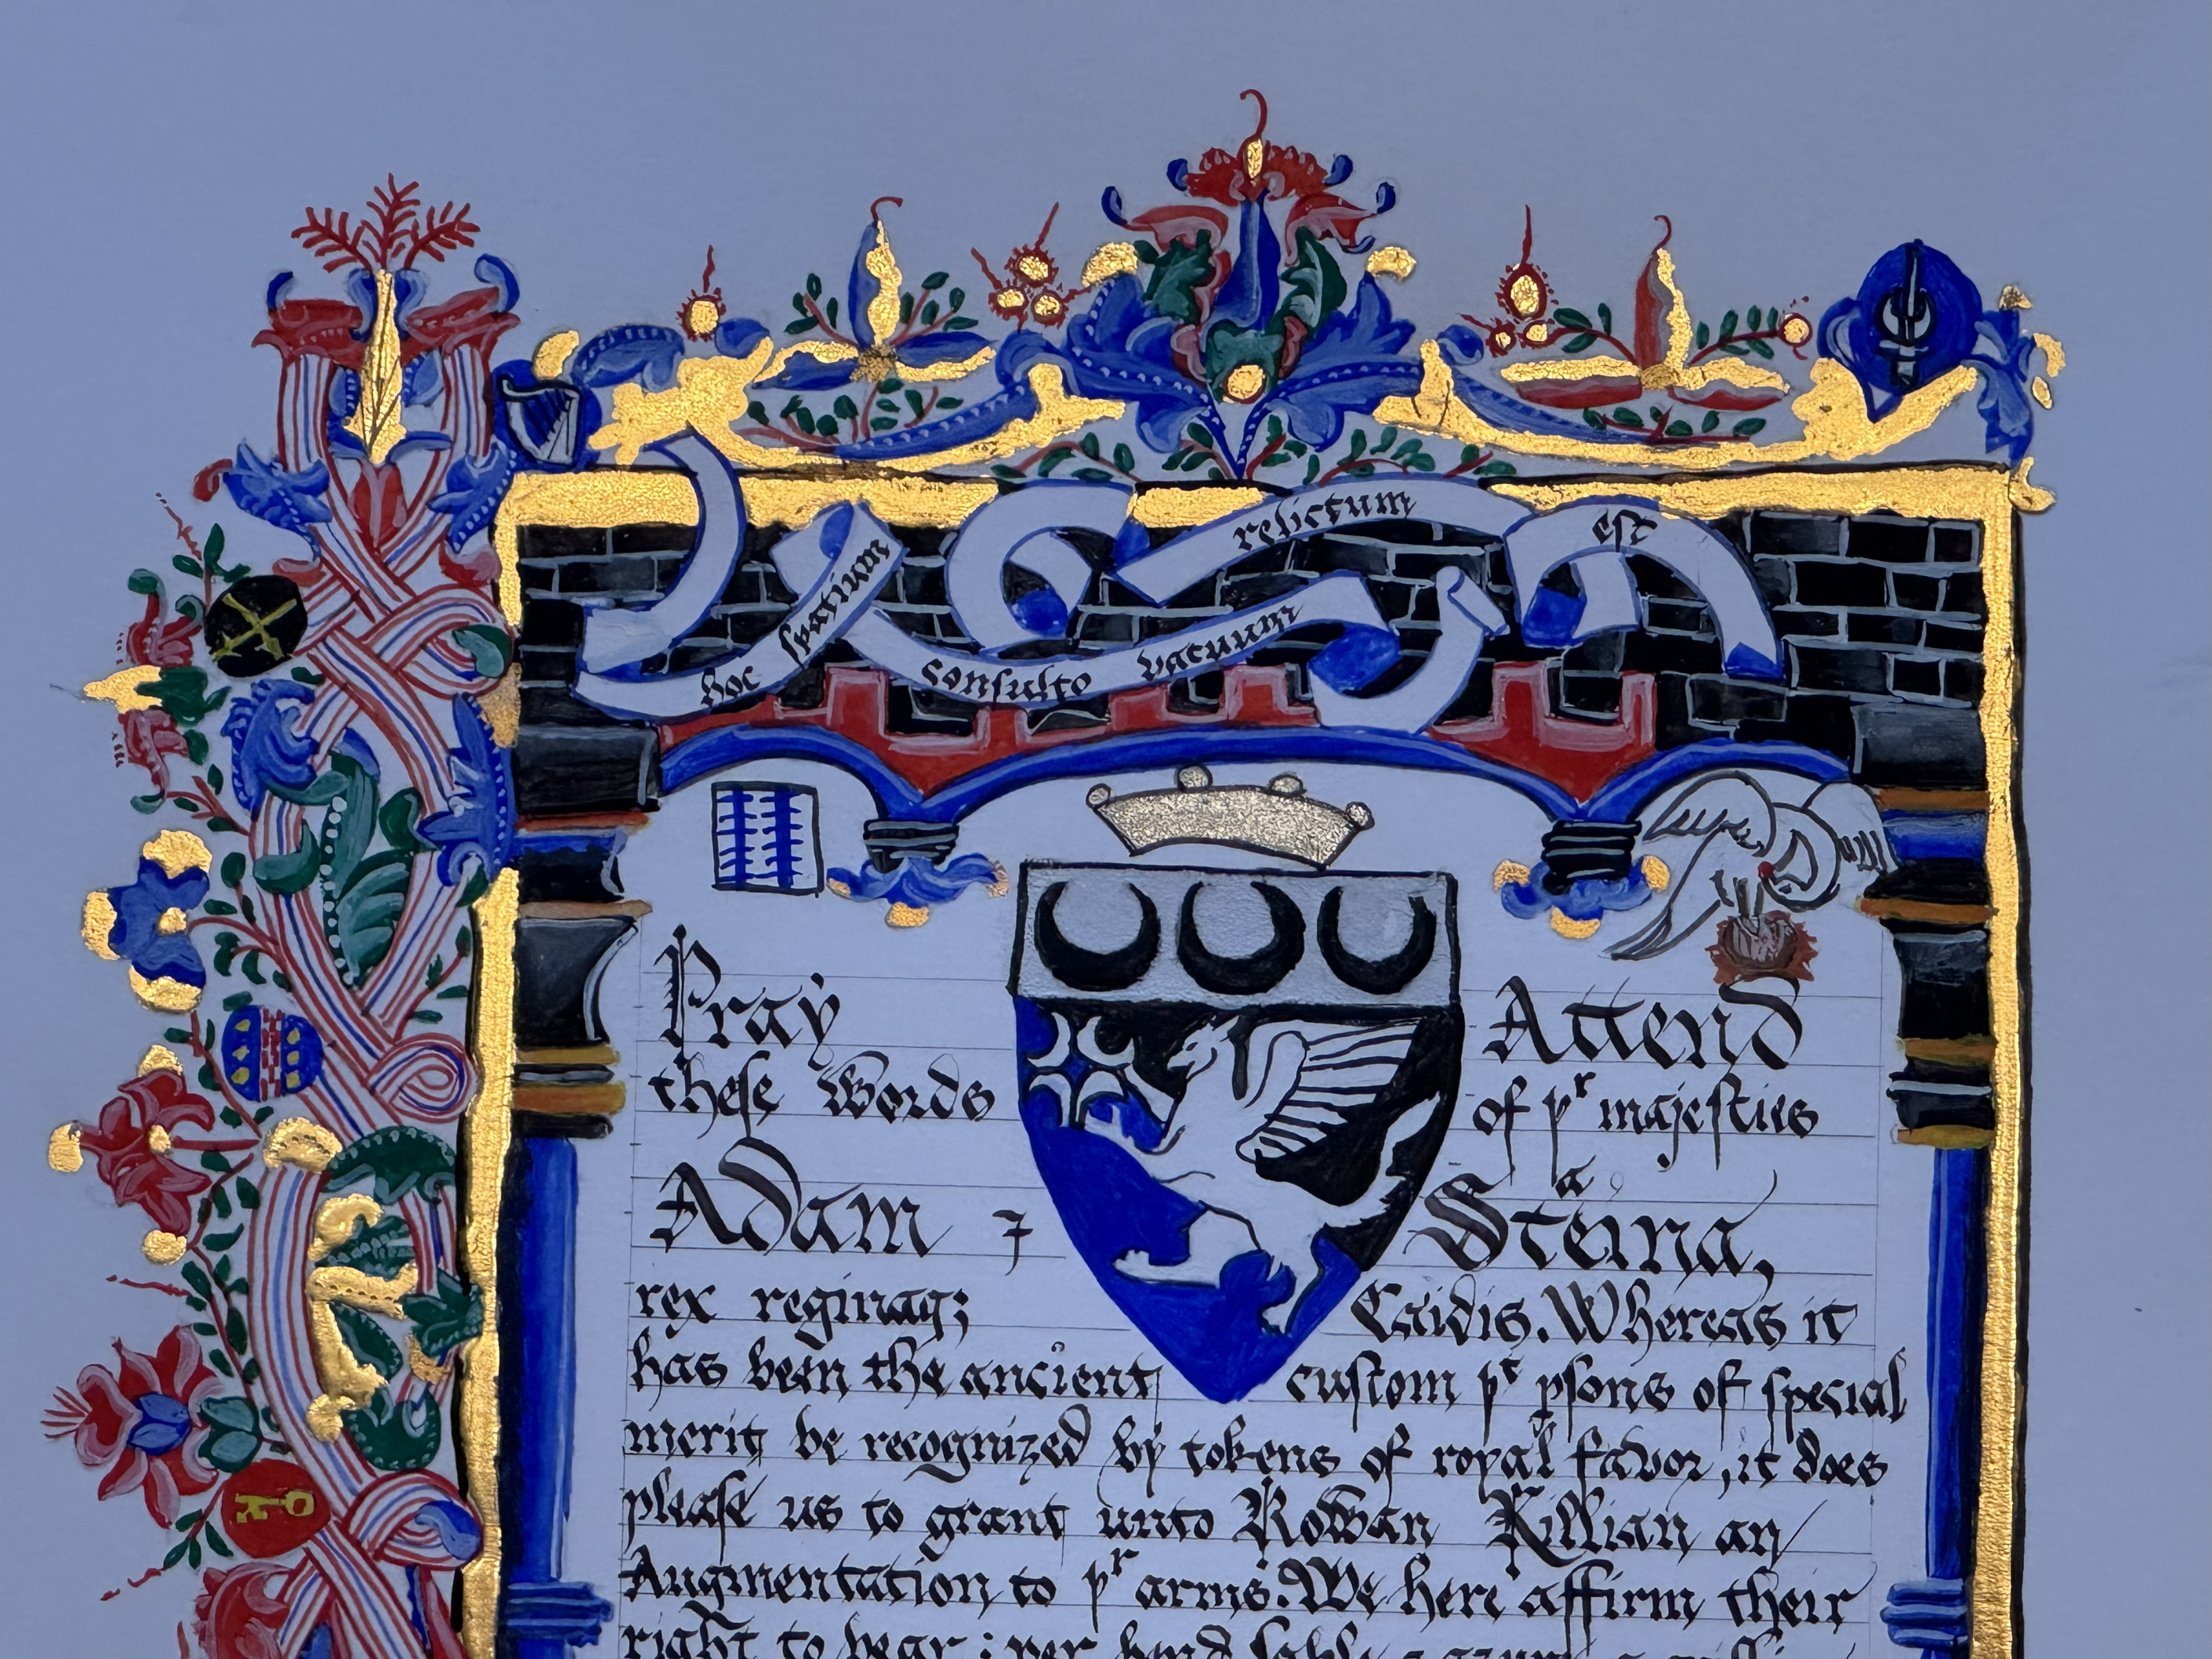 hoc spatium consulto vacuum relictum est
Pray Attend
these Words of pr majesties
Adam ⁊ Steina,
rex reginaq; Caidis. Whereas it
has been the ancient custom pt psons of special
merit be recognized by tokens of royal favor, it does
please us to grant unto Rowan Killian an
Augmentation to pr arms. We here affirm their
right to bear : per bend sable